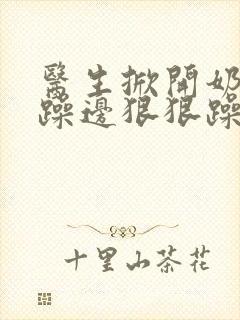 醫生掀開奶
躁邊狠狠躁
十里山茶花